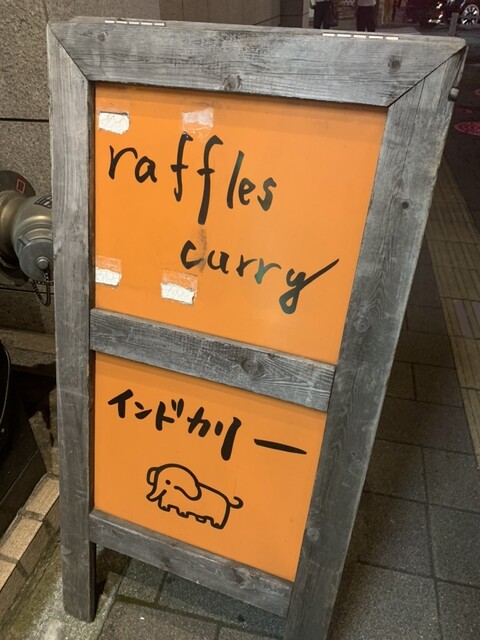 raffles
curry
インドカリー